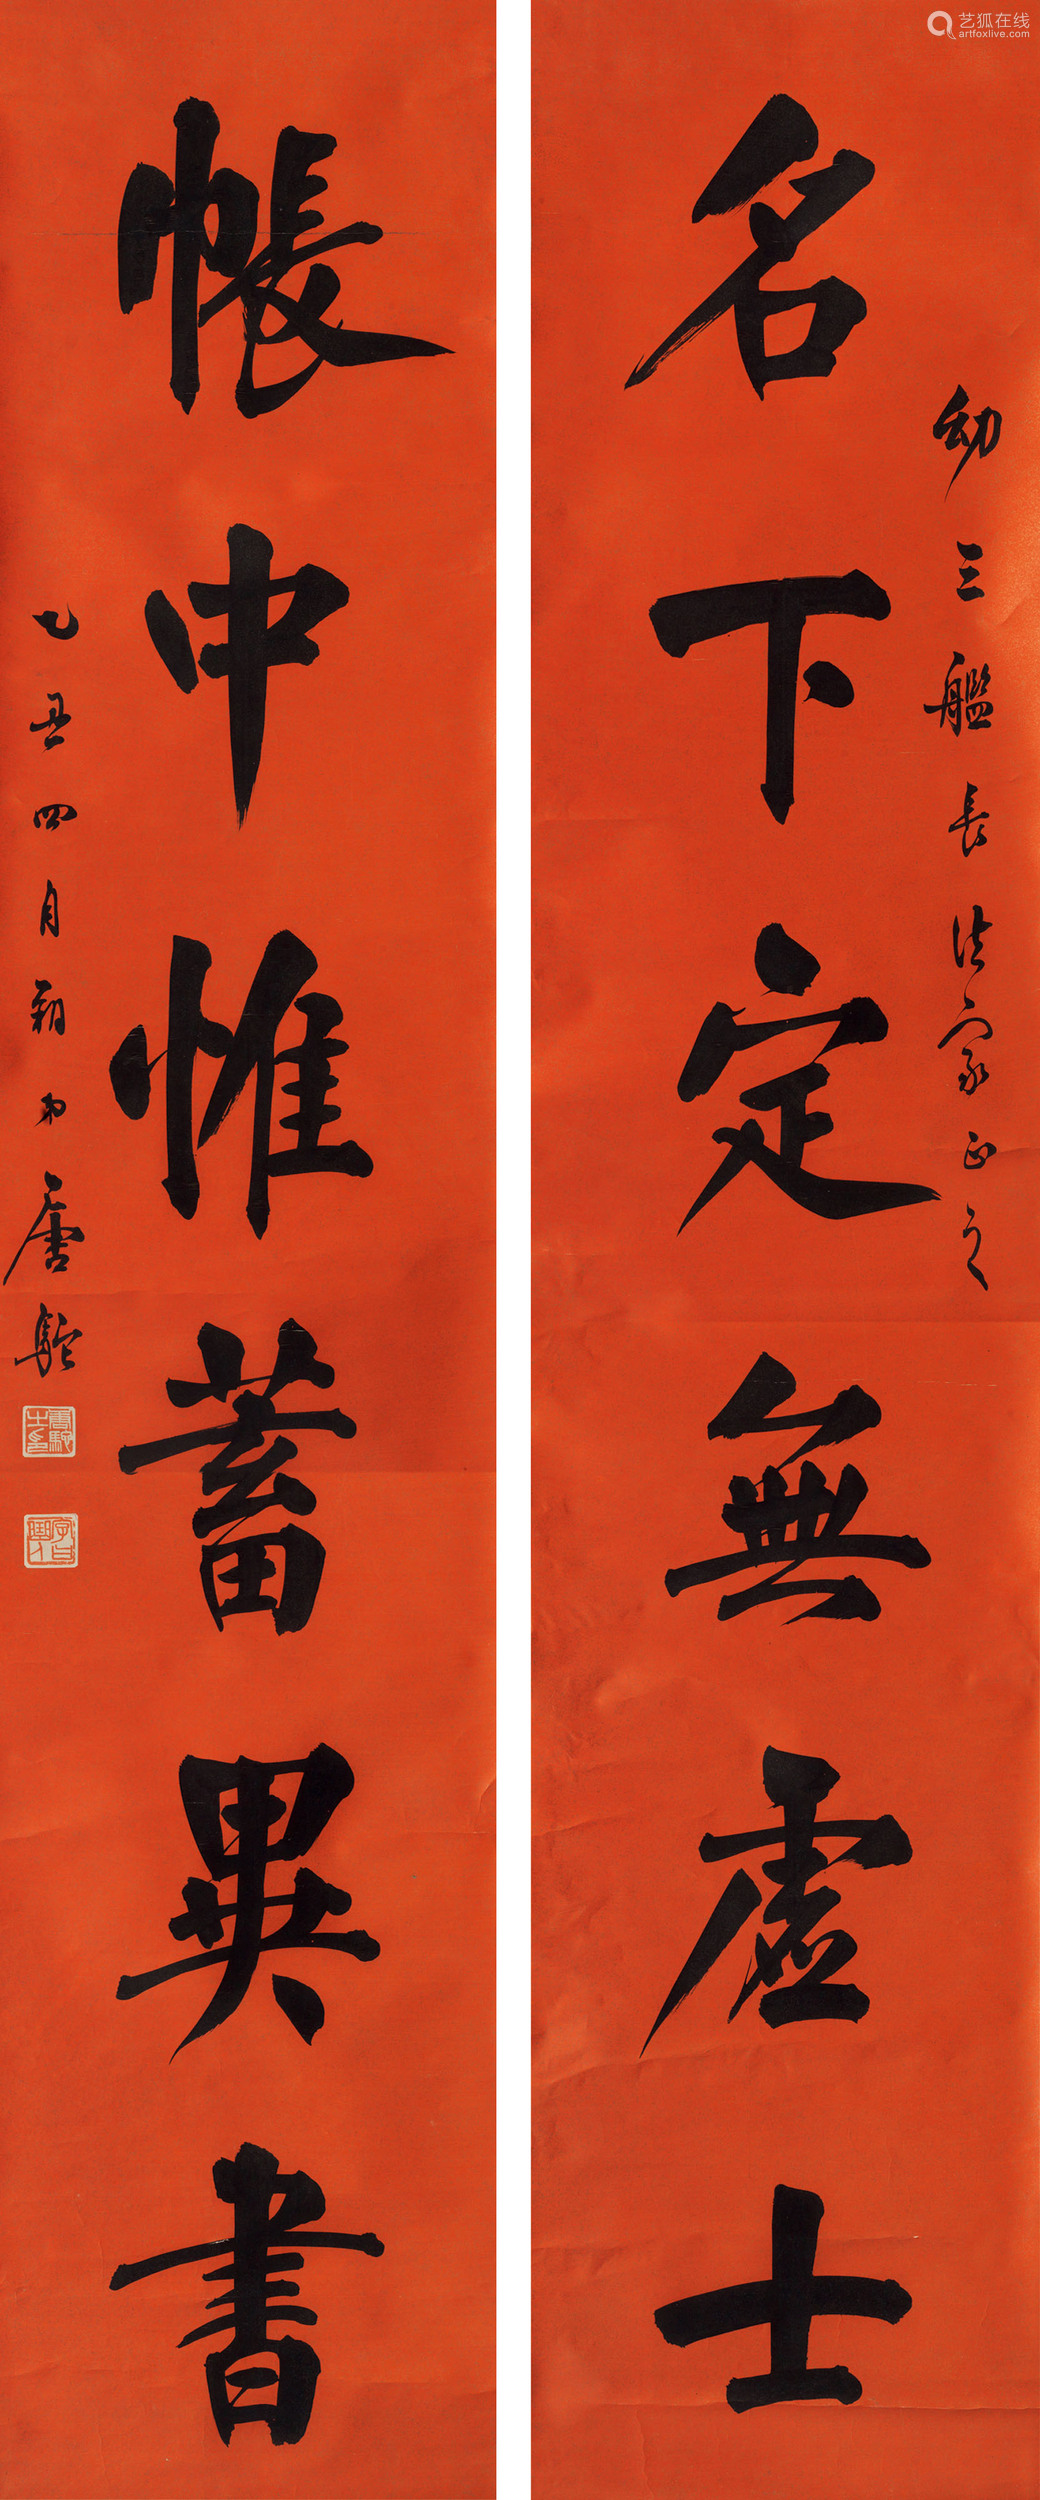 艺狐在线
artfoxlive.com
幼三艦長法家正之
名下定無虛士
帳中惟蓄異書
乙丑四月朔日唐駝
唐駝之印